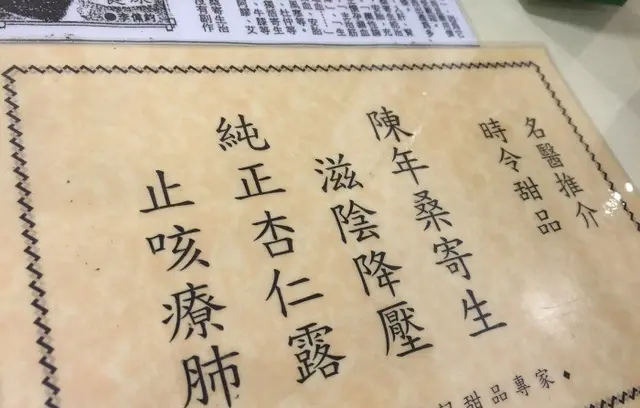 名醫推介
時令甜品
陳年桑寄生
滋陰降壓
純正杏仁露
止咳療肺
甜品專家